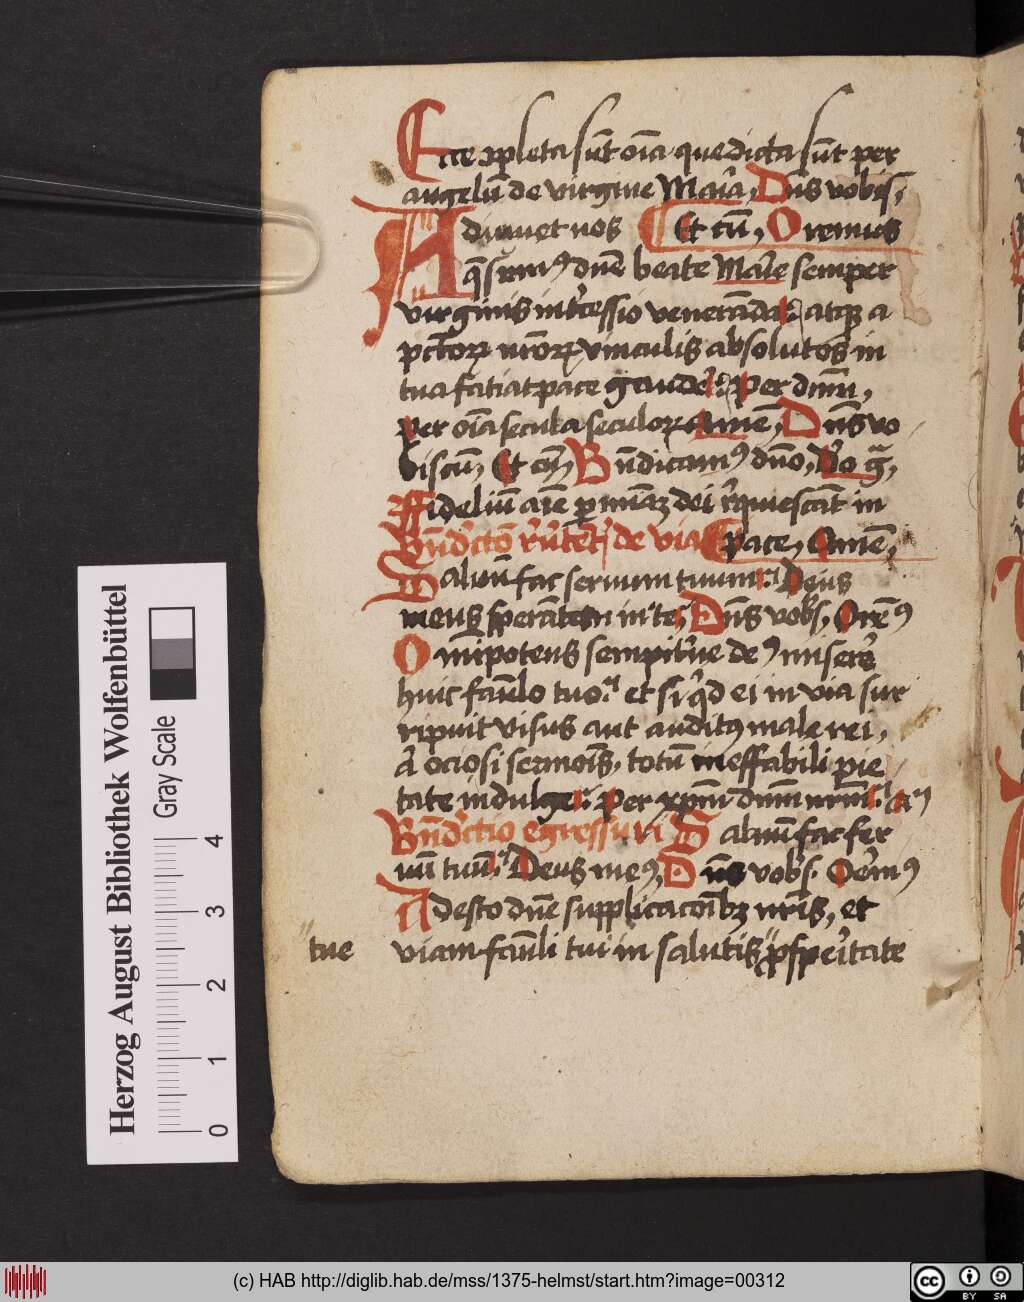 Ecce ↄpleta sūt oīa que dicta sūt per
angelū de virgine Maīa, Dn̄s vobis,
Adiuuet nos Et cū, Oremus
q̄sumꝰ dn̄e beate Maīe semper
virginis int̾cessio veneranda, atqꝫ a
pctōrꝝ nr̄orꝝ vinculis absolutos in
tua fatiat pace gaudē Per dm̄m,
per oīa secula seculorꝝ Amē, Dn̄s vo
biscū, Et cū, Bn̄dicamꝰ dn̄o, Dō grā,
Fideliū aīe per miāꝫ dei req̾escāt in
Bn̄dictō de via pace, Amē,
Saluū fac seruum tuum Deus
meus sperātem in te, Dn̄s vobs, Orēꝰ
Omīpotens sempit̾ne deꝰ miserē
huic famlo tuo et si qd ei in via sur
ripuit visus aut auditꝰ male rei,
aī ociosi sermoīs, totū ineffabili pie
tate indulge Per xpm̄ dm̄m nrm̄
Bn̄dictio egressuri Saluū fac ser
uū tuū Deus meꝰ Dn̄s vobs. Oremꝰ
Adesto dn̄e supplicacoībꝫ nr̄is, et
tue viam famli tui in salutis ꝓsperitate
Herzog August Bibliothek Wolfenbüttel
Gray Scale
0 1 2 3 4
(c) HAB http://diglib.hab.de/mss/1375-helmst/start.htm?image=00312
cc BY SA